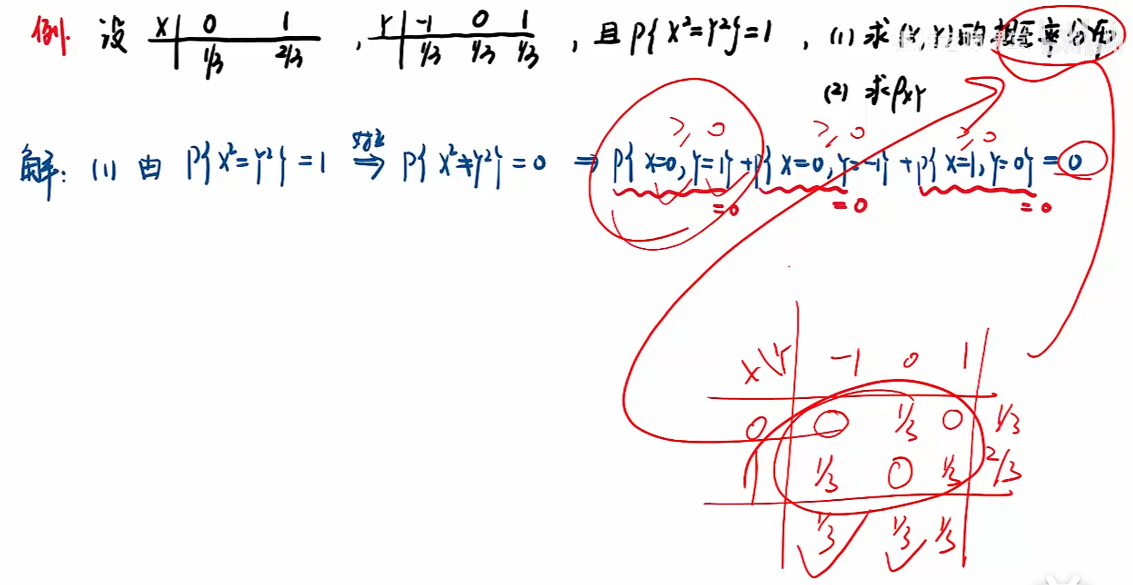 例. 设 X | 0 1 , Y | -1 0 1 , 且 P{X²=Y²}=1 , (1) 求(X,Y)的概率分布
1/3 2/3 1/3 1/3 1/3
(2) 求ρXY
≥0 ≥0 ≥0
解: (1) 由 P{X²=Y²}=1 ⇒ P{X²≠Y²}=0 ⇒ P{X=0,Y=1}+P{X=0,Y=-1}+P{X=1,Y=0}=0
=0 =0 =0
X\Y -1 0 1
0 0 1/3 0 1/3
1 1/3 0 1/3 2/3
1/3 1/3 1/3